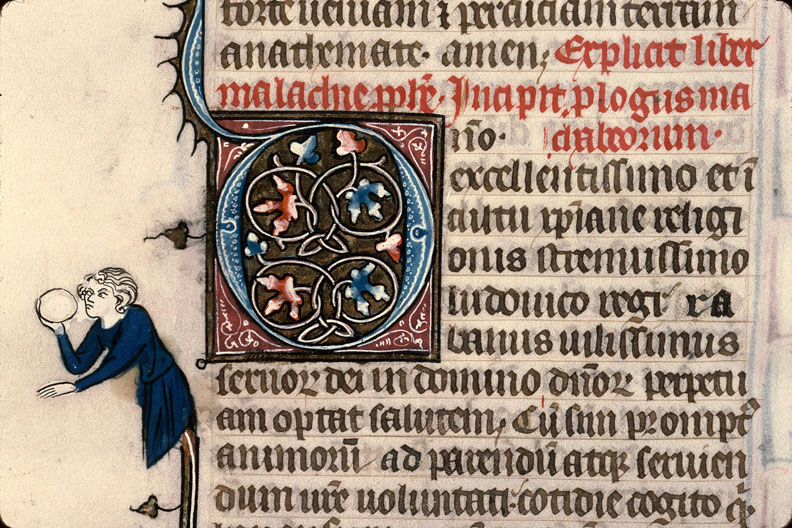 forte ueniam ⁊ percuciam terram
anathemate. amen; Explicit liber
malachie pphē. Incipit plogus ma
Dn̄o. chabeorum.
excellentissimo et ī
cultu xp̄iane religi
onis strenuissimo
ludouico regi ra
banus uilissimus
seruoꝝ dei in domino dn̄oꝝ perpetu
am optat salutem; Cū sim prompt᷒
animorū ad parendū atqꝫ seruien
dum ur̄e uoluntati. cotidie cogito